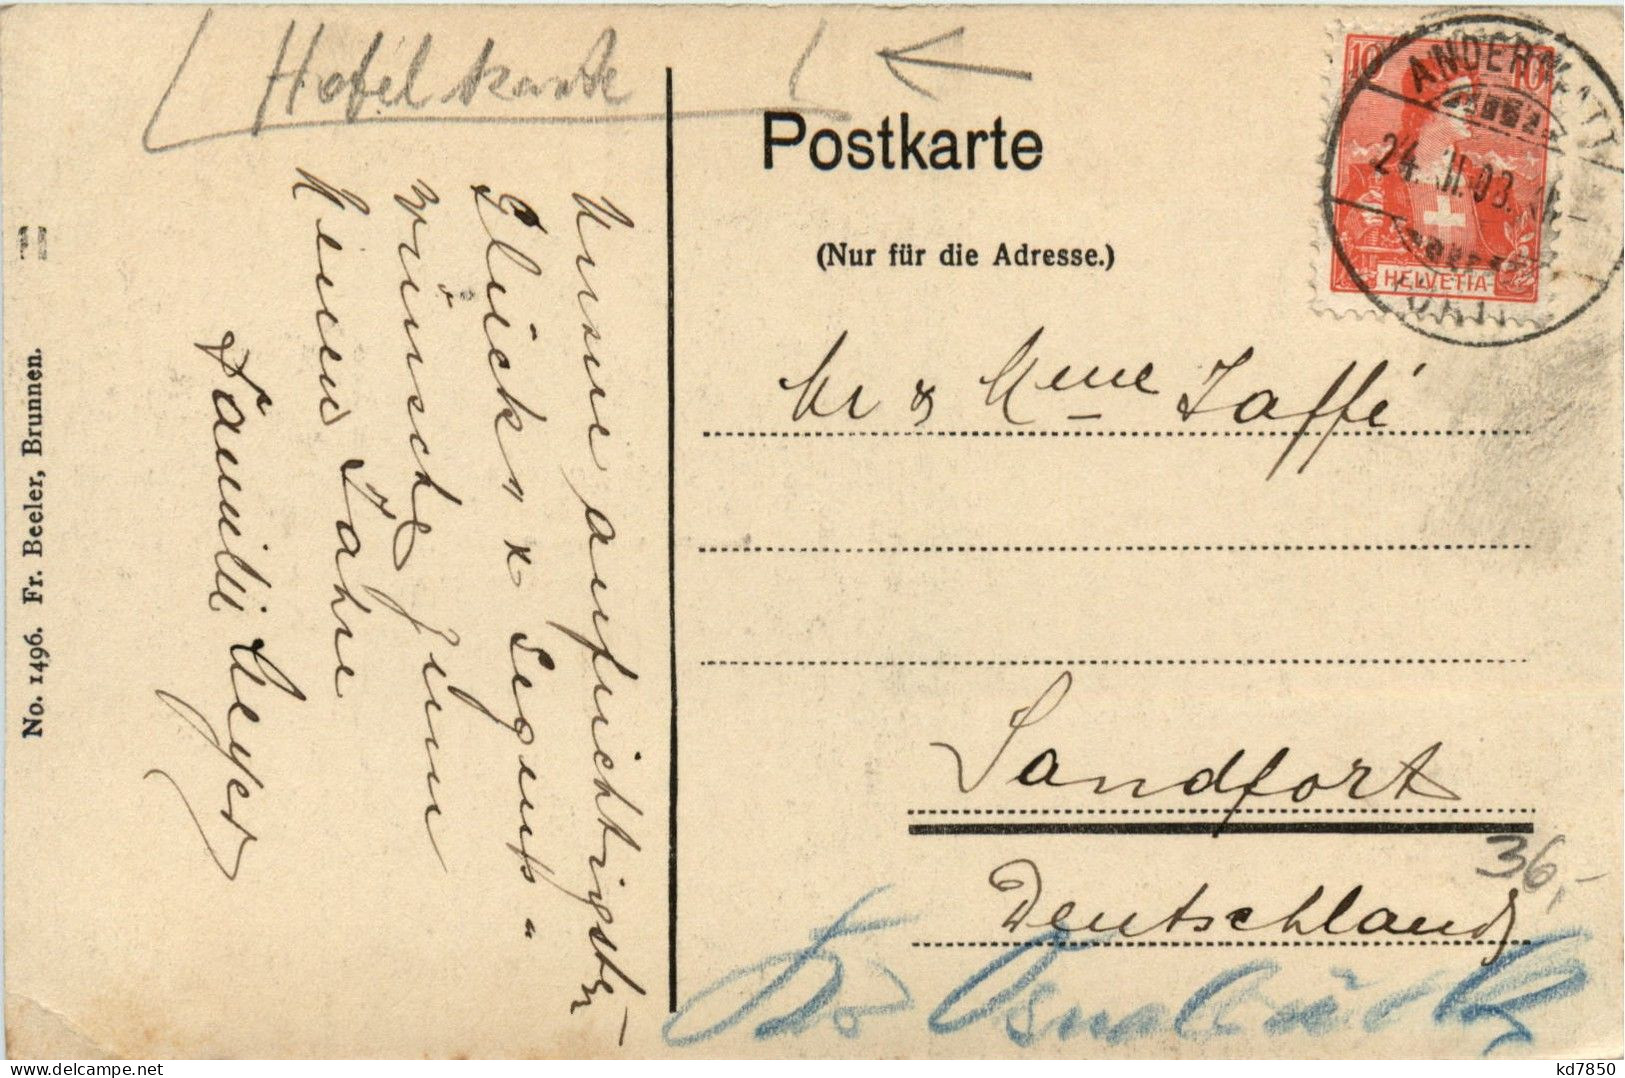 Hotelkarte
Postkarte
(Nur für die Adresse.)
ANDERMATT
24.XII.08.
10 10
HELVETIA
Mr & Mme Jaffé
Sandfort
Deutschland
36,-
Osnabrück
Unsere aufrichtigsten
Glücks u Segens-
wünsche zum
Neuen Jahre
Familie Meyer
No. 1496. Fr. Beeler, Brunnen.
kd7850